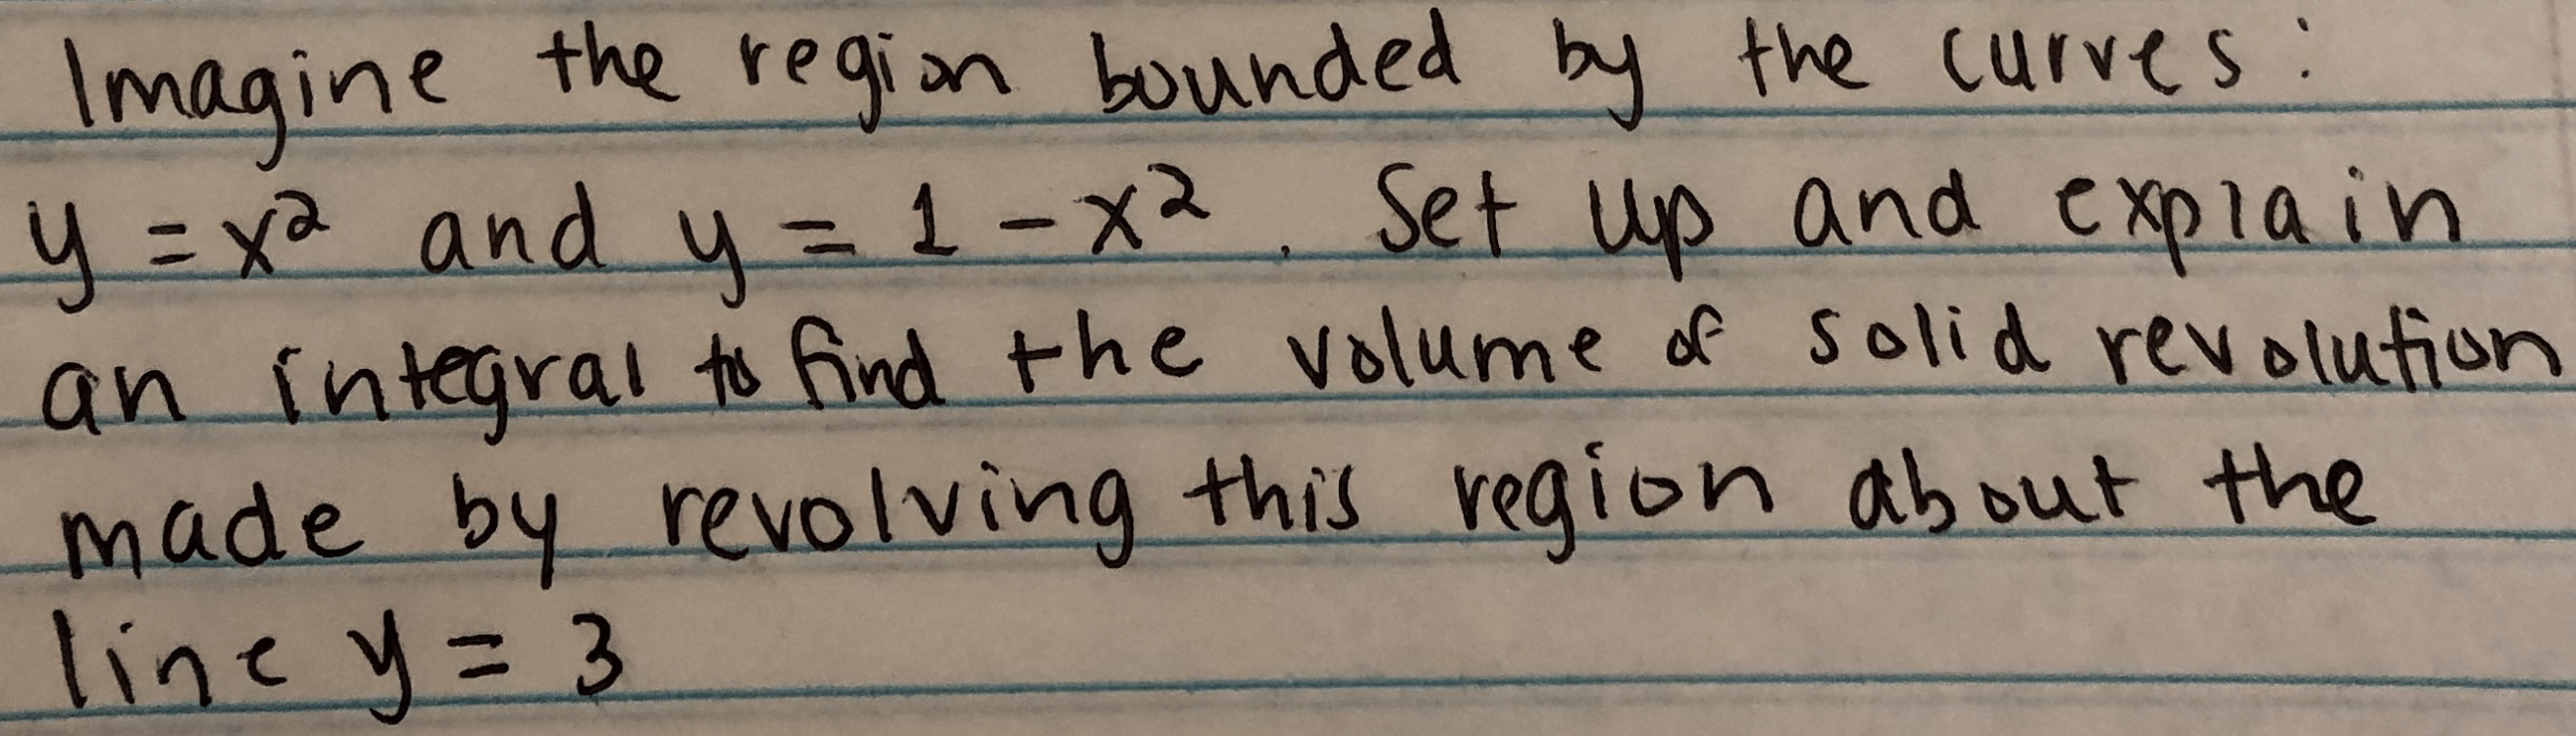 Imagine the region bounded by the curves:
y = x² and y = 1 - x². Set up and explain
an integral to find the volume of solid revolution
made by revolving this region about the
line y = 3